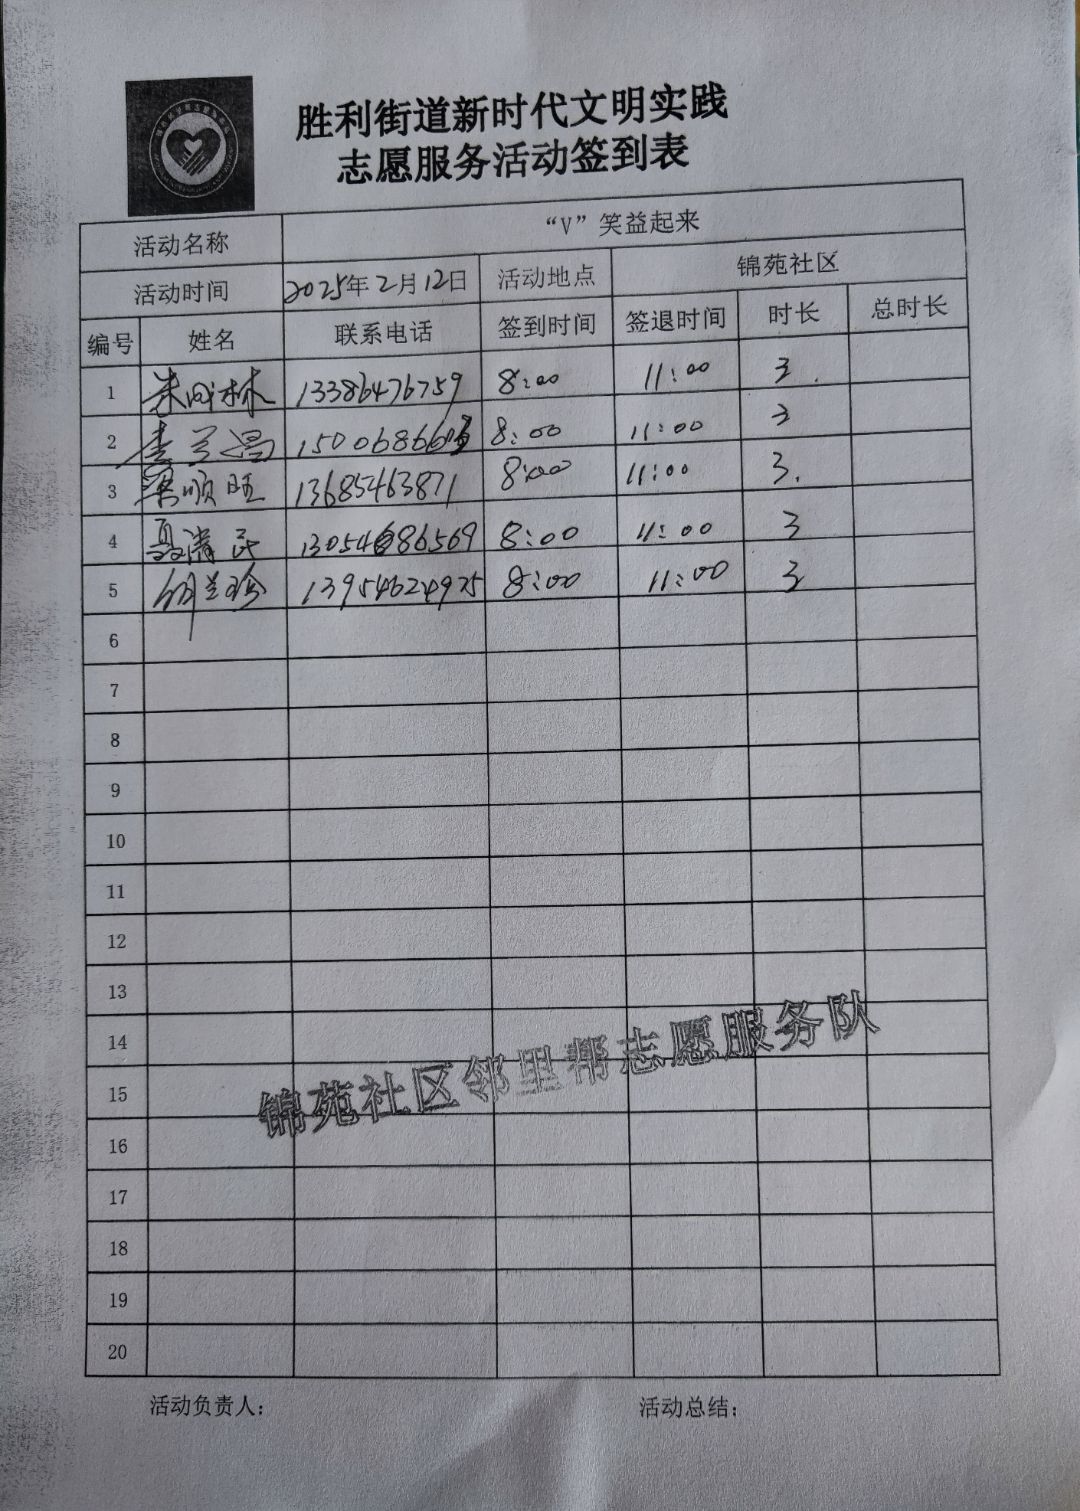 胜利街道新时代文明实践
志愿服务活动签到表
活动名称 “V”笑益起来
活动时间 2025年2月12日 活动地点 锦苑社区
编号 姓名 联系电话 签到时间 签退时间 时长 总时长
1 朱成林 13386476759 8:00 11:00 3
2 李兰昌 8:00 11:00 3
3 梁顺旺 13685463871 8:00 11:00 3.
4 聂清民 13054686569 8:00 11:00 3
5 13954624975 8:00 11:00 3
6
7
8
9
10
11
12
13
14
15
16
17
18
19
20
锦苑社区邻里帮志愿服务队
活动负责人: 活动总结: